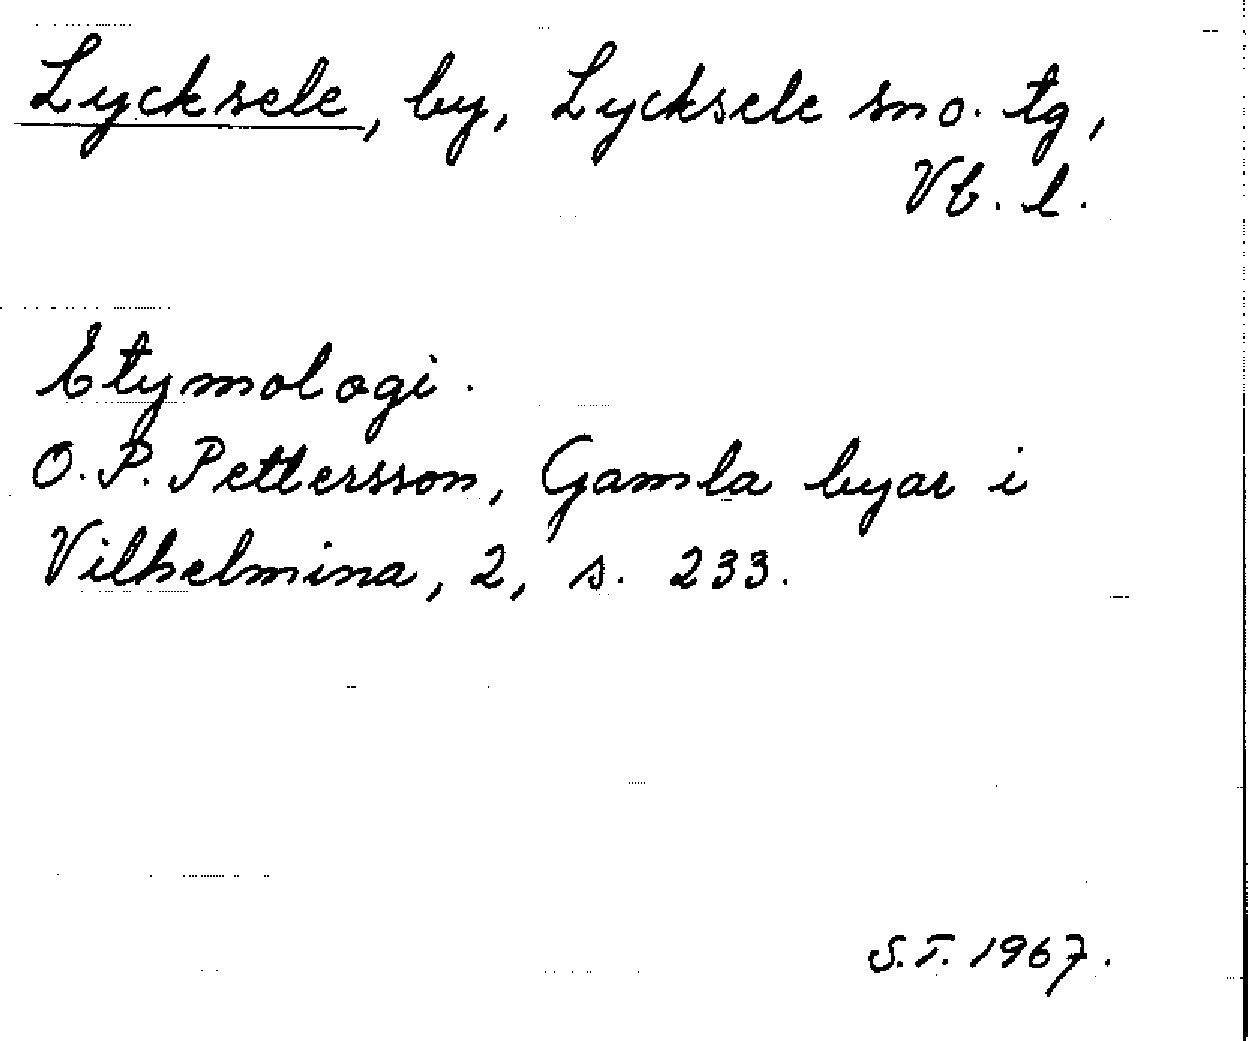 Lycksele, by, Lycksele sn o. tg,
Vb. l.
Etymologi.
O. P. Pettersson, Gamla byar i
Vilhelmina, 2, s. 233.
S.T. 1967.